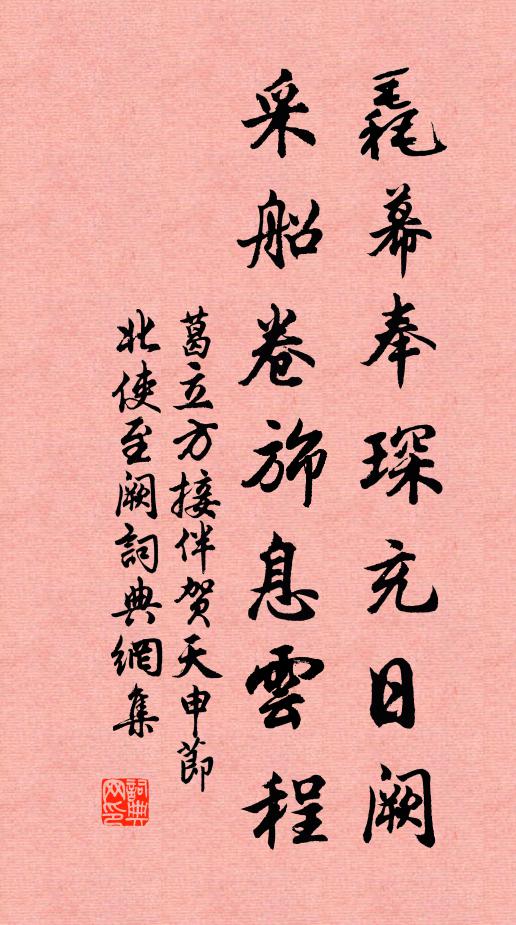 毳幕奉琛充日闕
采船卷斾息雲程
葛立方接伴賀天申節
北使至闕詞典網集
詞典網印